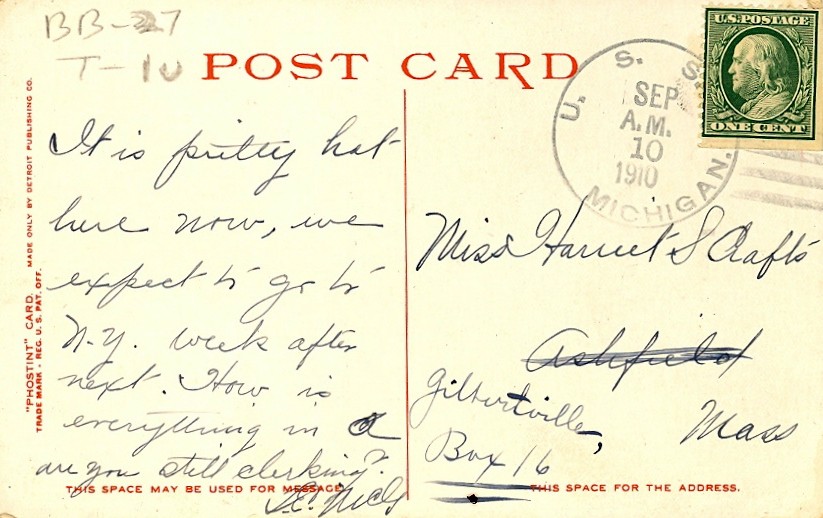 BB-27
T-10
POST CARD
U.S. POSTAGE
ONE CENT
U. S. S.
SEP
A.M.
10
1910
MICHIGAN.
"PHOSTINT" CARD. MADE ONLY BY DETROIT PUBLISHING CO.
TRADE MARK - REG. U. S. PAT. OFF.
It is pretty hot
here now, we
expect to go to
N.Y. week after
next. How is
everything in A
are you still clerking?
THIS SPACE MAY BE USED FOR MESSAGE
Miss Harriet S Crafts
Ashfield
Gilbertville,
Mass
Box 16
THIS SPACE FOR THE ADDRESS.